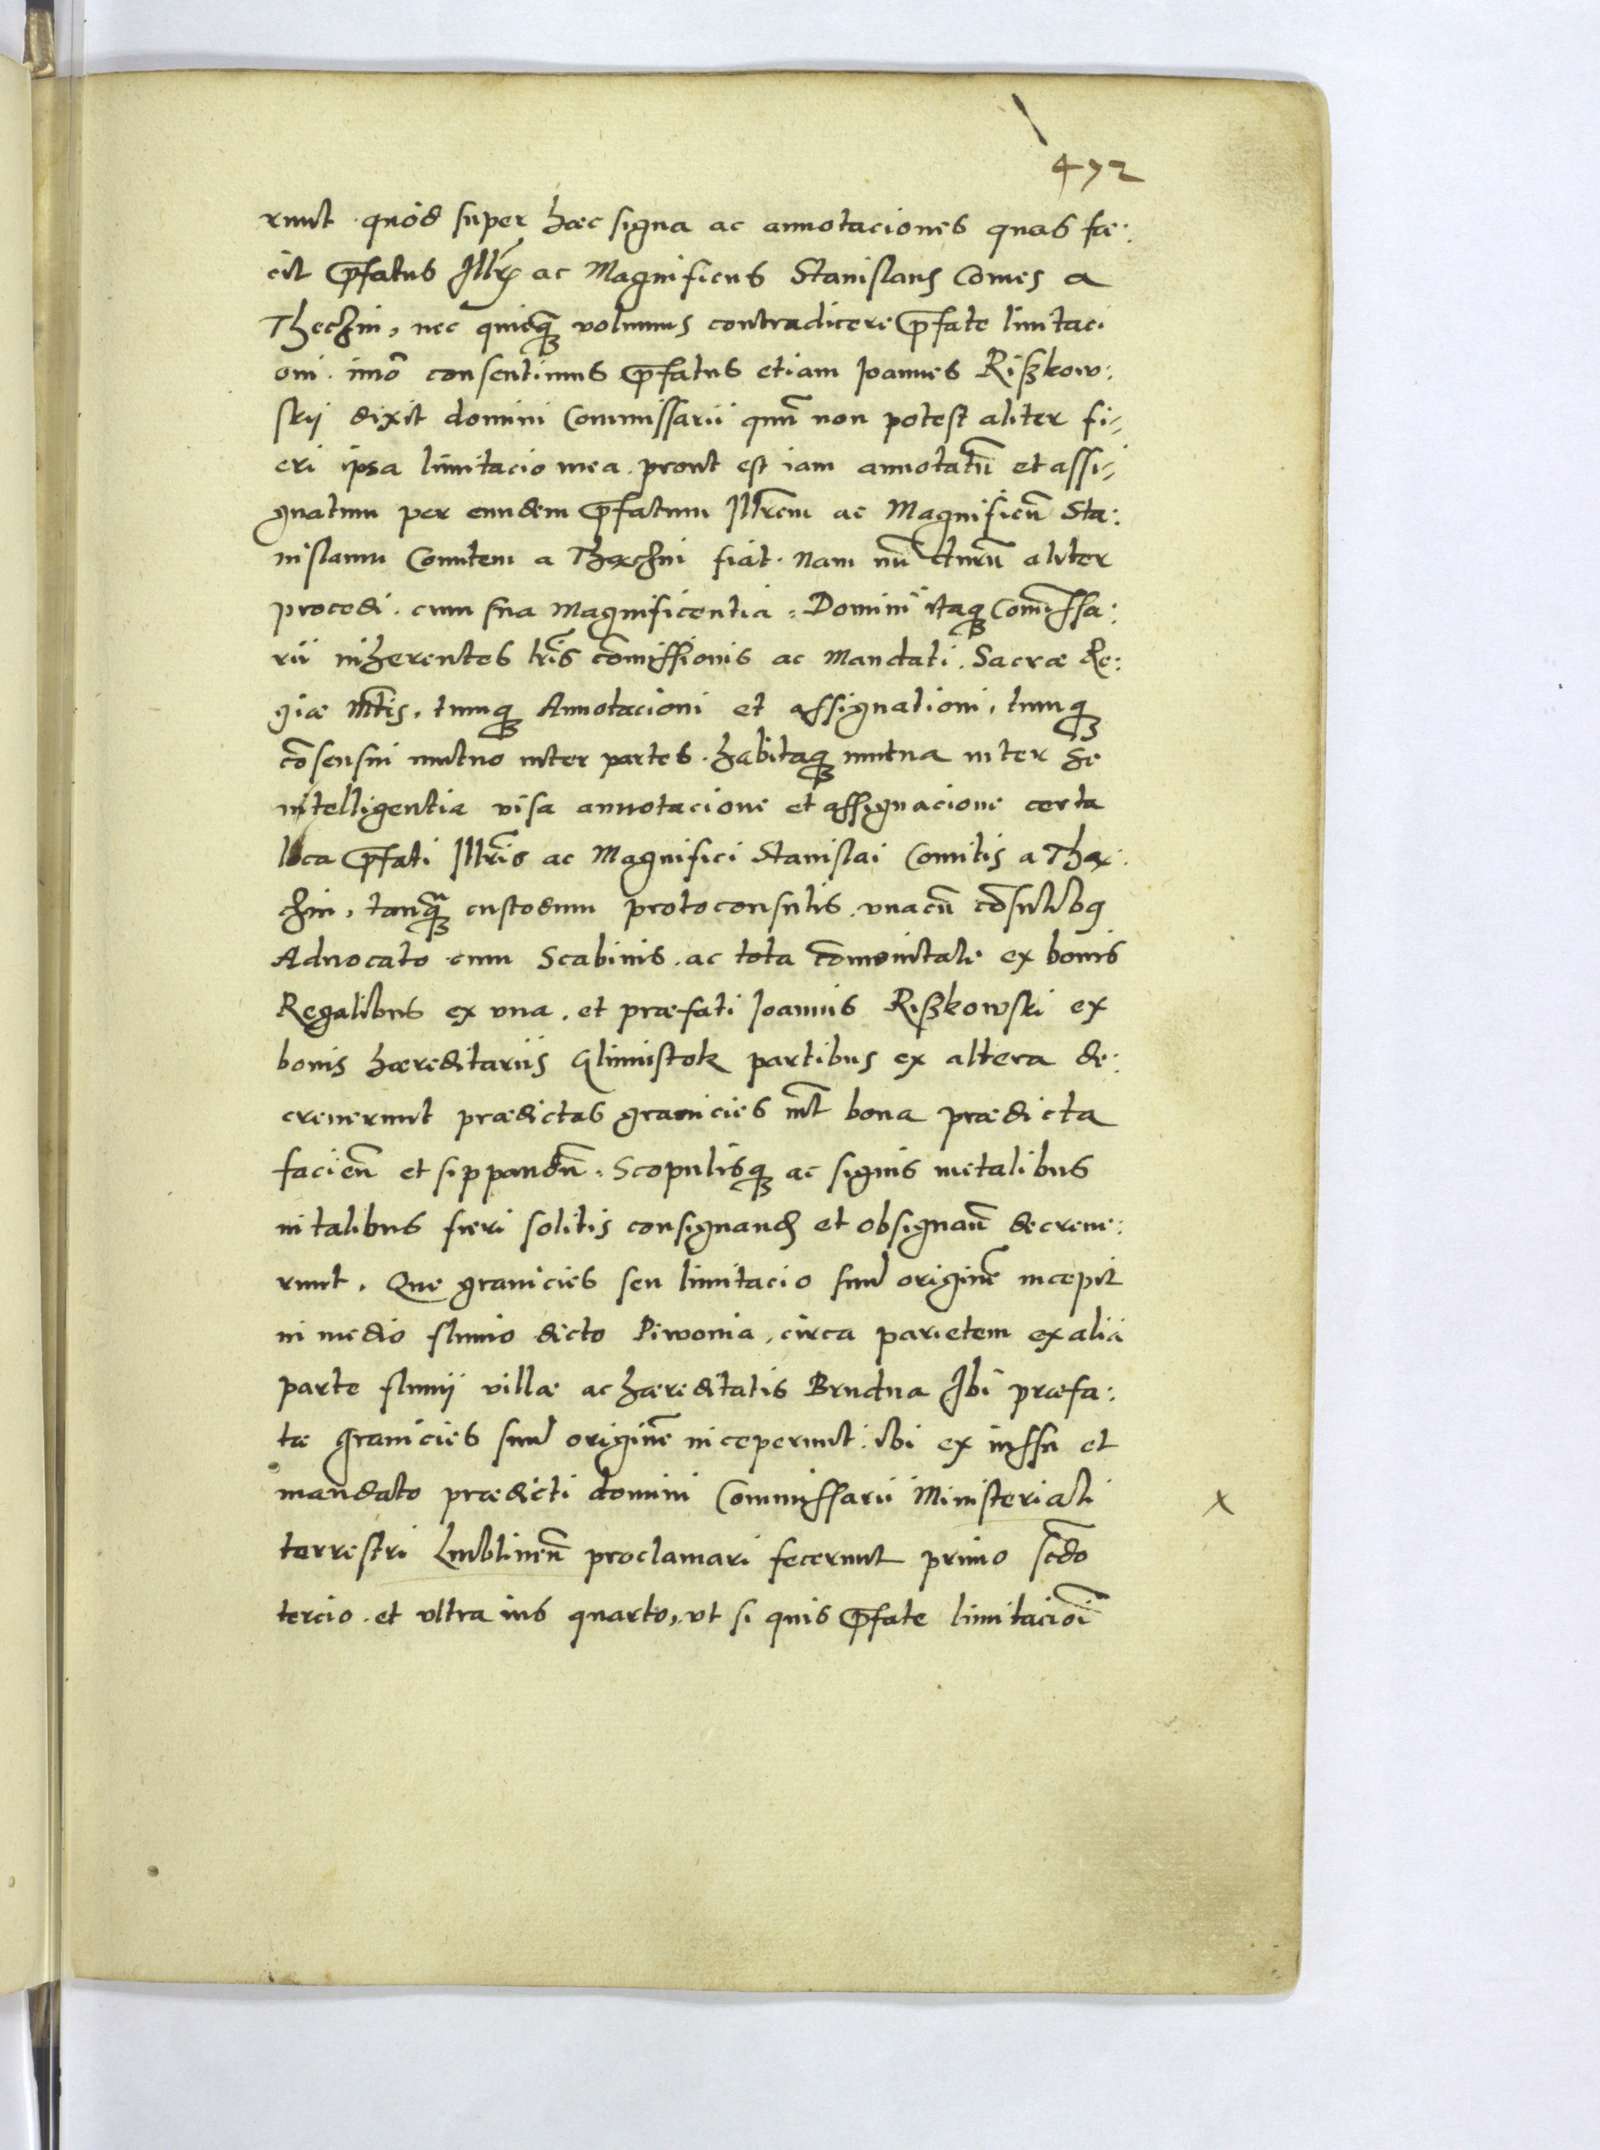 472
runt quòd super hæc signa ac annotaciones quas fæ:
cit Prfatus Illris ac Magnificus Stanislaus Comes a
Theczin, nec quicqua volumus contradicere Prfate limitaci
oni. imo consentimus Prfatus etiam Joannes Rißkow:
skij dixit domini Commissarii qum non potest aliter fi:
eri ipsa limitacio mea prout est iam annotatum et assi:
gnatum per eundem Prfatum Illrem ac Magnificum Sta:
nislaum Comitem a Thæczin fiat. Nam aliter
procedi cum sua Magnificentia. Domini itaq Comissa:
rii inherentes lris comissionis ac Mandati Sacræ Re:
giæ Mtis, tumq Annotacioni et assignationi, tumq
cosensui mutuo inter partes habitaq mutua inter se
intelligentia visa annotacione et assignacione certa
loca Prfati Illris ac Magnifici Stanislai Comitis a Thæ:
czin, tanqua custodum protoconsulis vnacum cosulibq
Aduocato cum Scabinis ac tota comunitate ex bonis
Regalibus ex vna, et præfati Joannis Rißkowski ex
bonis hæreditariis Glinnistok partibus ex altera de:
creuerunt prædictas granicies int bona prædicta
facien et sippandu. Scopulisq ac signis metalibus
in talibus fieri solitis consignand et obsignan decreue:
runt. Que granicies seu limitacio suu origine incepit
in medio fluuio dicto Piwonia, circa parietem ex alia
parte fluuij villæ ac hæreditatis Brudna Ibi præfa:
tæ granicies suu origine inceperunt ibi ex iussu et
mandato prædicti domini Commissarii Ministeriali
terrestri Lublinen proclamari fecerunt primo scdo
tercio et vltra ius quarto, vt si quis Prfate limitacioi
x